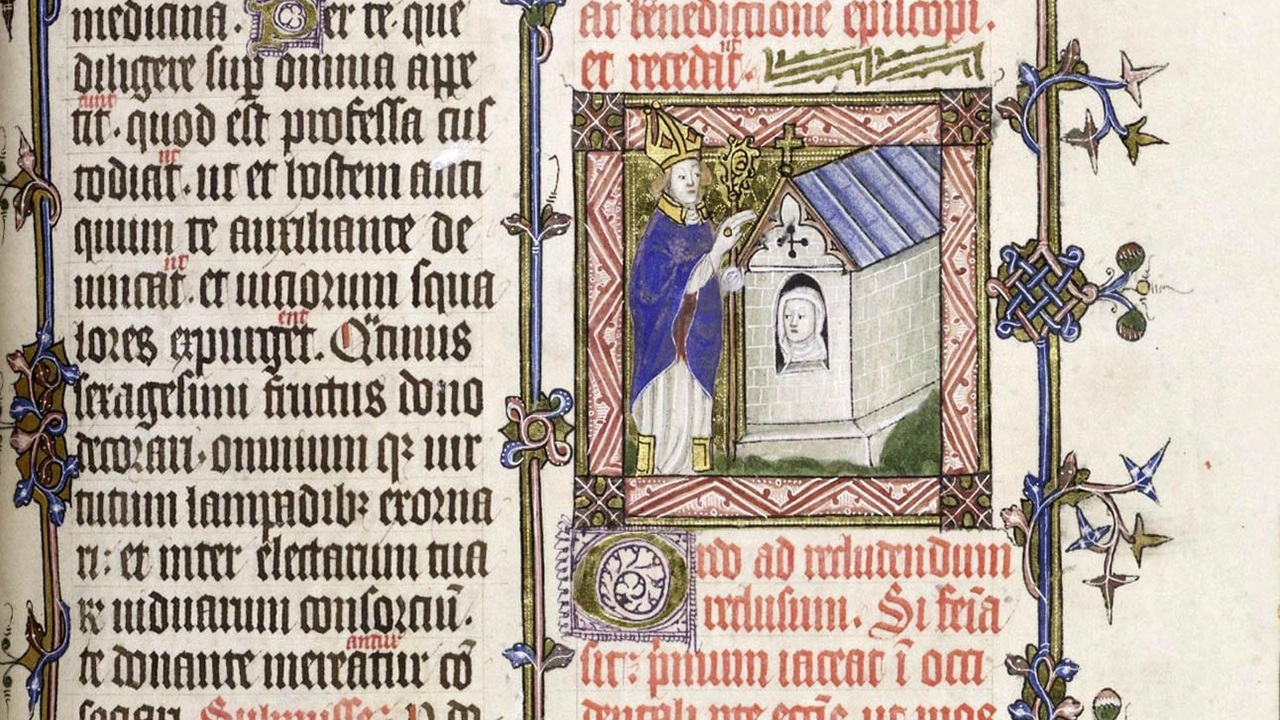 medicina. Per te que
diligere sup omnia appe
tunt
tit. quod est professa cus
nt
todiat. ut et hostem anti
quum te auxiliante de
nt
uincat. et uiciorum squa
ent
lores expurget. Qatinus
sexagesimi fructus dono
decorari. omnium qꝫ uir
tutum lampadibꝫ exorna
ri: et inter electarum tua
rꝫ uiduarum consorciū.
antur
te donante mereatur cō
sociari
at benedictione episcopi.
nt
et recedat.
Ordo ad recludendum
reclusum. Si feīa
sit: pmum iaceat ī occi
dentali pte eccīe ut mos